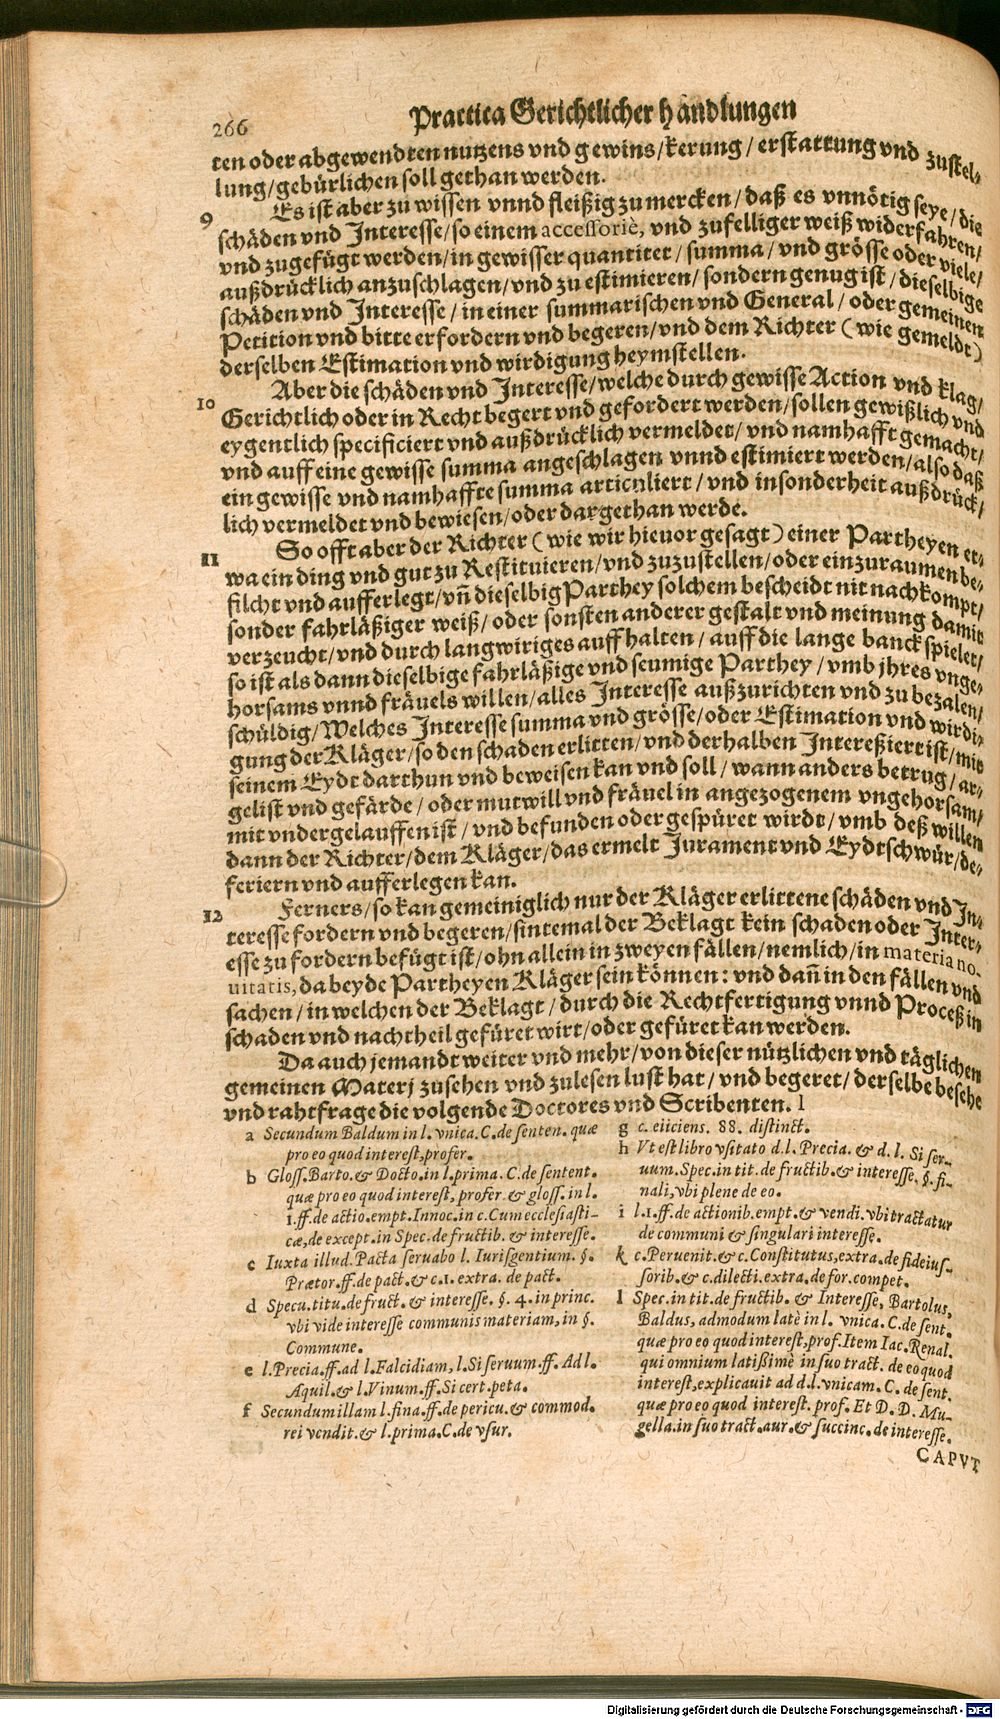 266
Practica Gerichtlicher handlungen
ten oder abgewendten nutzens vnd gewins/kerung/erstattung vnd zustel-
lung/gebürlichen soll gethan werden.
9
Es ist aber zu wissen vnnd fleißig zu mercken/daß es vnnötig seye/die
schäden vnd Interesse/so einem accessoriè, vnd zufelliger weiß widerfahren/
vnd zugefügt werden/in gewisser quantitet/summa/vnd grösse oder viele/
außdrücklich anzuschlagen/vnd zu estimieren/sondern genug ist/dieselbige
schäden vnd Interesse/in einer summarischen vnd General/oder gemeinen
Petition vnd bitte erfordern vnd begeren/vnd dem Richter (wie gemeldt)
derselben Estimation vnd wirdigung heymstellen.
10
Aber die schäden vnd Interesse/welche durch gewisse Action vnd klag/
Gerichtlich oder in Recht begert vnd gefordert werden/sollen gewißlich vnd
eygentlich specificiert vnd außdrücklich vermeldet/vnd namhafft gemacht/
vnd auff eine gewisse summa angeschlagen vnnd estimiert werden/also daß
ein gewisse vnd namhaffte summa articuliert/vnd insonderheit außdrück/
lich vermeldet vnd bewiesen/oder dargethan werde.
11
So offt aber der Richter (wie wir hieuor gesagt) einer Partheyen et-
wa ein ding vnd gut zu Restituieren/vnd zuzustellen/oder einzuraumen be-
filcht vnd aufferlegt/vñ dieselbig Parthey solchem bescheidt nit nachkompt/
sonder fahrläßiger weiß/oder sonsten anderer gestalt vnd meinung damit
verzeucht/vnd durch langwiriges auffhalten/auff die lange banck spielet/
so ist als dann dieselbige fahrläßige vnd seumige Parthey/vmb jhres vnge-
horsams vnnd fräuels willen/alles Interesse außzurichten vnd zu bezalen/
schüldig/Welches Interesse summa vnd grösse/oder Estimation vnd wirdi-
gung der Kläger/so den schaden erlitten/vnd derhalben Intereßiert ist/mit
seinem Eydt darthun vnd beweisen kan vnd soll/wann anders betrug/ar-
gelist vnd gefärde/oder mutwill vnd fräuel in angezogenem vngehorsam/
mit vndergelauffen ist/vnd befunden oder gespüret wirdt/vmb deß willen
dann der Richter/dem Kläger/das ermelt Jurament vnd Eydtschwür/de-
feriern vnd aufferlegen kan.
12
Ferners/so kan gemeiniglich nur der Kläger erlittene schäden vnd In-
teresse fordern vnd begeren/sintemal der Beklagt kein schaden oder Inter-
esse zu fordern befügt ist/ohn allein in zweyen fällen/nemlich/in materia no-
uitatis, da beyde Partheyen Kläger sein können: vnd dañ in den fällen vnd
sachen/in welchen der Beklagt/durch die Rechtfertigung vnnd Proceß in
schaden vnd nachtheil gefüret wirt/oder gefüret kan werden.
Da auch jemandt weiter vnd mehr/von dieser nützlichen vnd täglichen
gemeinen Materj zusehen vnd zulesen lust hat/vnd begeret/derselbe besehe
vnd rahtfrage die volgende Doctores vnd Scribenten. l
a Secundum Baldum in l. vnica. C. de senten. quæ
pro eo quod interest, profer.
b Gloss. Barto. & Docto. in l. prima. C. de sentent.
quæ pro eo quod interest, profer. & gloss. in l.
1. ff. de actio. empt. Innoc. in c. Cum ecclesiasti-
cæ, de except. in Spec. de fructib. & interesse.
c Iuxta illud. Pacta seruabo l. Iurisgentium. §.
Prætor. ff. de pact. & c. 1. extra. de pact.
d Specu. titu. de fruct. & interesse, §. 4. in princ.
vbi vide interesse communis materiam, in §.
Commune.
e l. Precia. ff. ad l. Falcidiam, l. Si seruum. ff. Ad l.
Aquil. & l. Vinum. ff. Si cert. peta.
f Secundum illam l. fina. ff. de pericu. & commod.
rei vendit. & l. prima. C. de vsur.
g c. eiiciens. 88. distinct.
h Vt est libro vsitato d. l. Precia. & d. l. Si ser-
uum. Spec. in tit. de fructib. & interesse. §. fi-
nali, vbi plene de eo.
i l. 1. ff. de actionib. empt. & vendi. vbi tractatur
de communi & singulari interesse.
k c. Peruenit. & c. Constitutus, extra. de fideius-
sorib. & c. dilecti. extra. de for. compet.
l Spec. in tit. de fructib. & Interesse, Bartolus,
Baldus, admodum latè in l. vnica. C. de sent.
quæ pro eo quod interest, prof. Item Iac. Renal.
qui omnium latißimè in suo tract. de eo quod
interest, explicauit ad d. l. vnicam. C. de sent.
quæ pro eo quod interest. prof. Et D. D. Mu-
gella. in suo tract. aur. & succinc. de interesse.
CAPVT
Digitalisierung gefördert durch die Deutsche Forschungsgemeinschaft - DFG